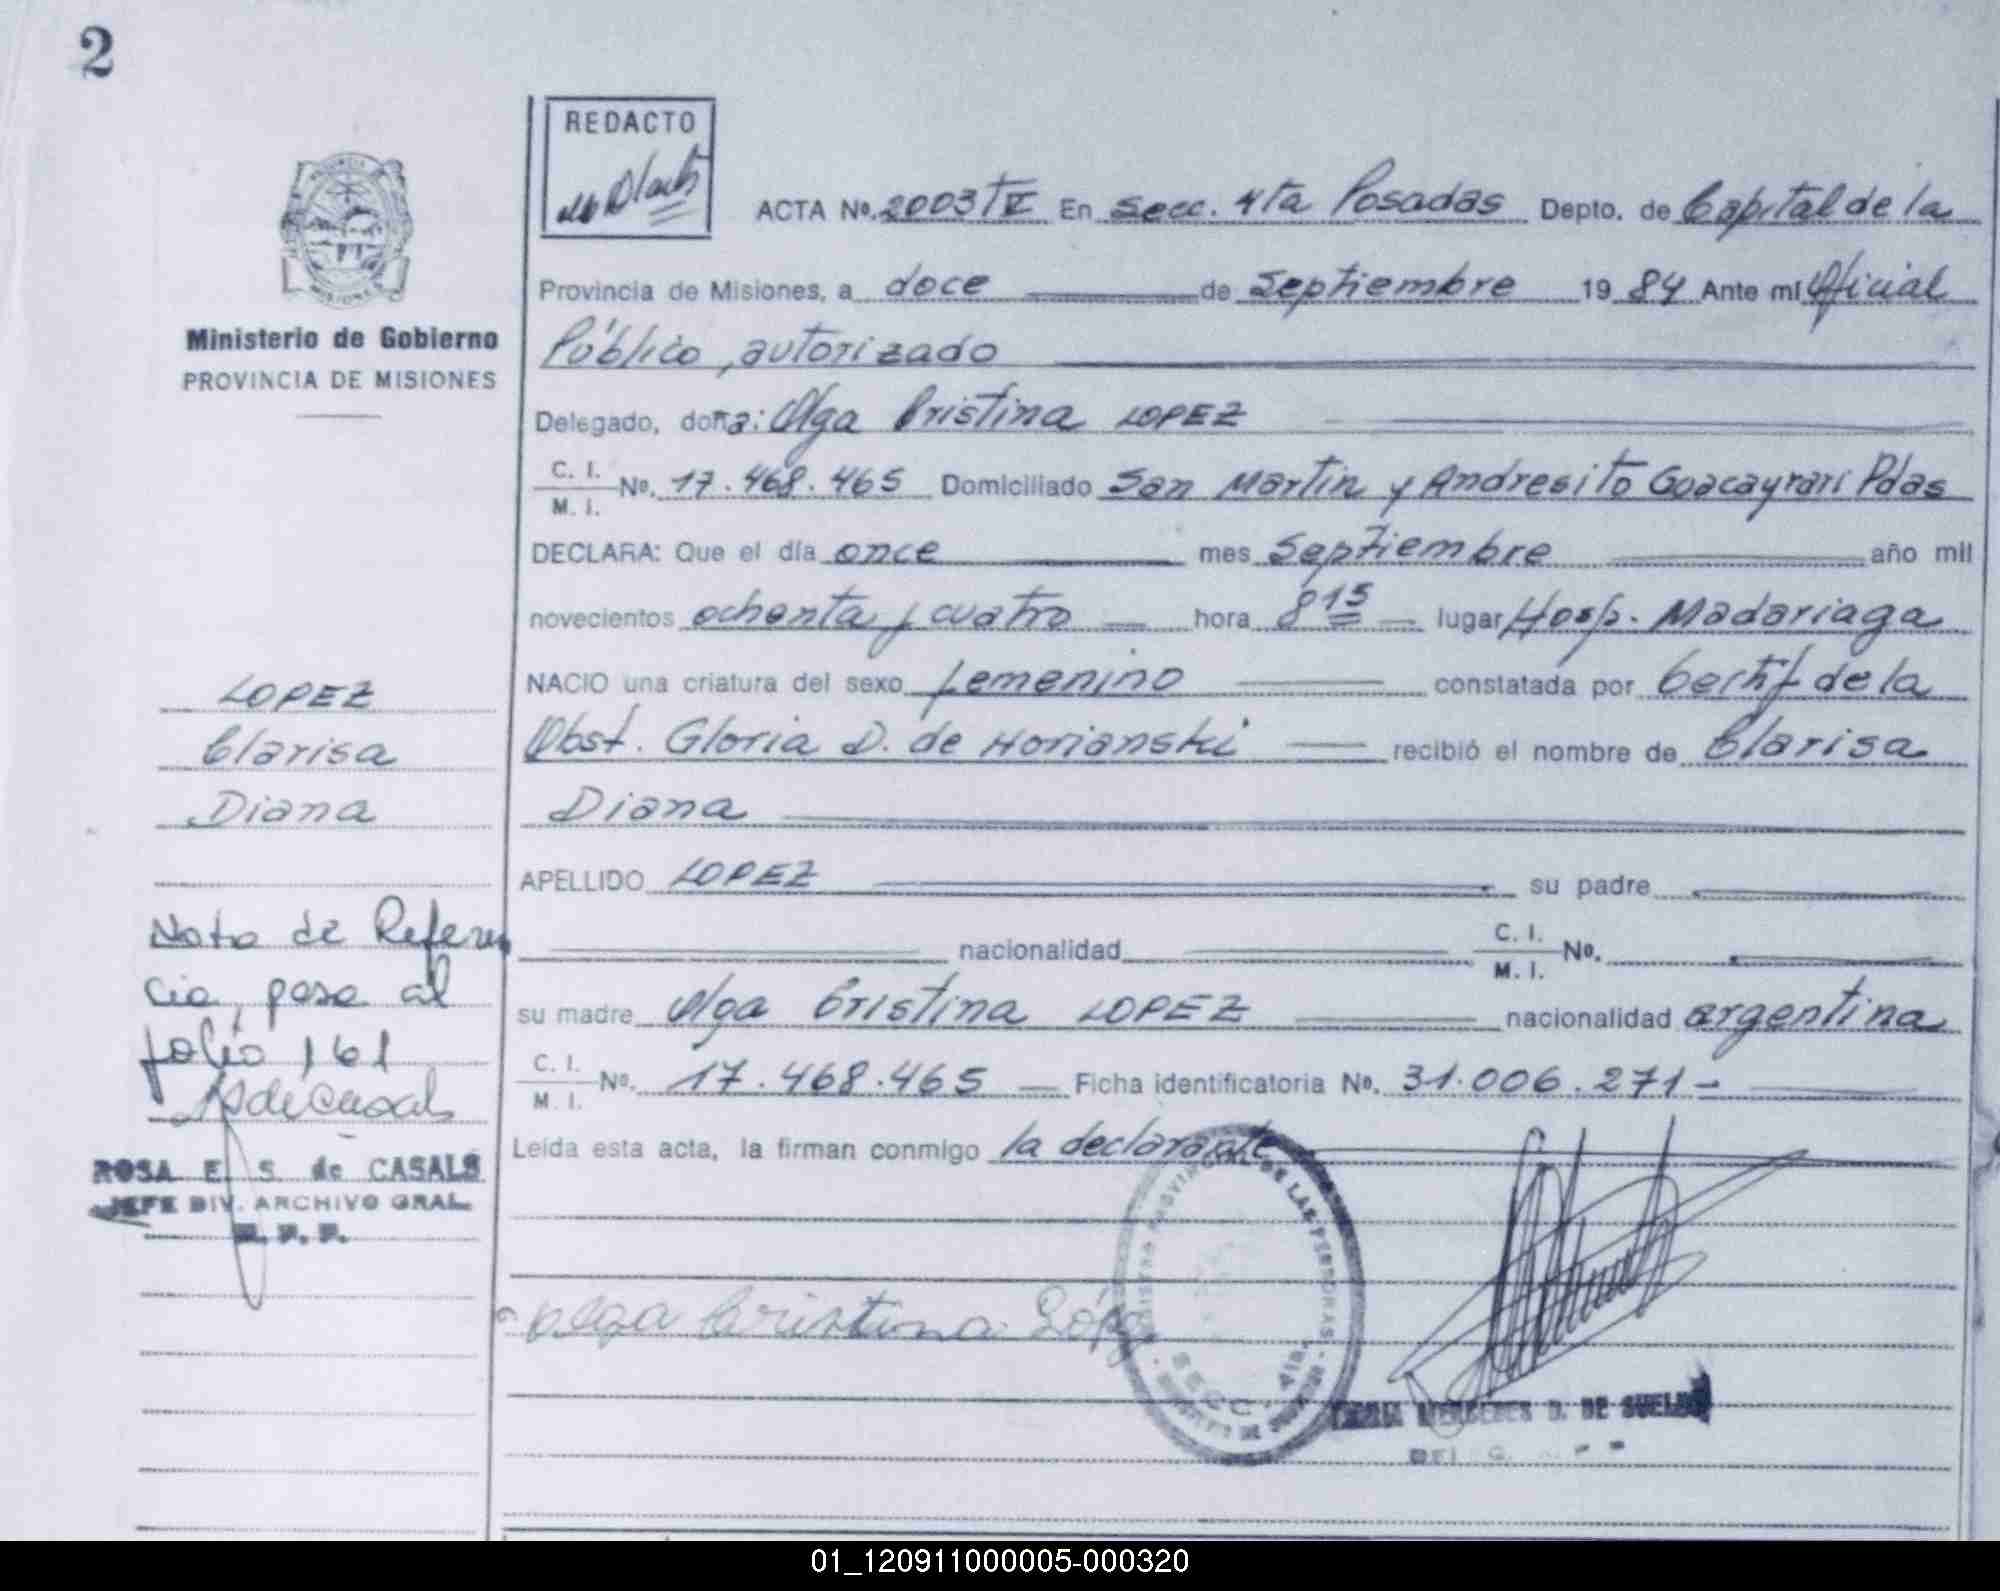 2
REDACTO
ACTA Nº. 2003 T V En Secc. 4ta Posadas Depto. de Capital de la
Provincia de Misiones, a doce de Septiembre 19 84 Ante mí Oficial
Público, autorizado
Delegado, doña: Olga Cristina LOPEZ
C. I.
M. I. Nº. 17.468.465 Domiciliado San Martin y Andresito Guacayrari Pdas
DECLARA: Que el día once mes Septiembre año mil
novecientos ochenta y cuatro hora 8 15 lugar Hosp. Madariaga
NACIO una criatura del sexo femenino constatada por Certif de la
Obst. Gloria D. de Horianski recibió el nombre de Clarisa
Diana
APELLIDO LOPEZ su padre
nacionalidad C. I.
M. I. Nº.
su madre Olga Cristina LOPEZ nacionalidad argentina
C. I.
M. I. Nº. 17.468.465 Ficha identificatoria No. 31.006.271-
Leída esta acta, la firman conmigo la declarante
Olga Cristina López
REGISTRO PROVINCIAL DE LAS PERSONAS
SECC. 4ta.
MERCEDES D. DE
PROVINCIA
MISIONES
Ministerio de Gobierno
PROVINCIA DE MISIONES
LOPEZ
Clarisa
Diana
Nota de Referen
cia, pasa al
folio 161
ROSA E. S. de CASALS
JEFE DIV. ARCHIVO GRAL.
R. P. P.
01_120911000005-000320